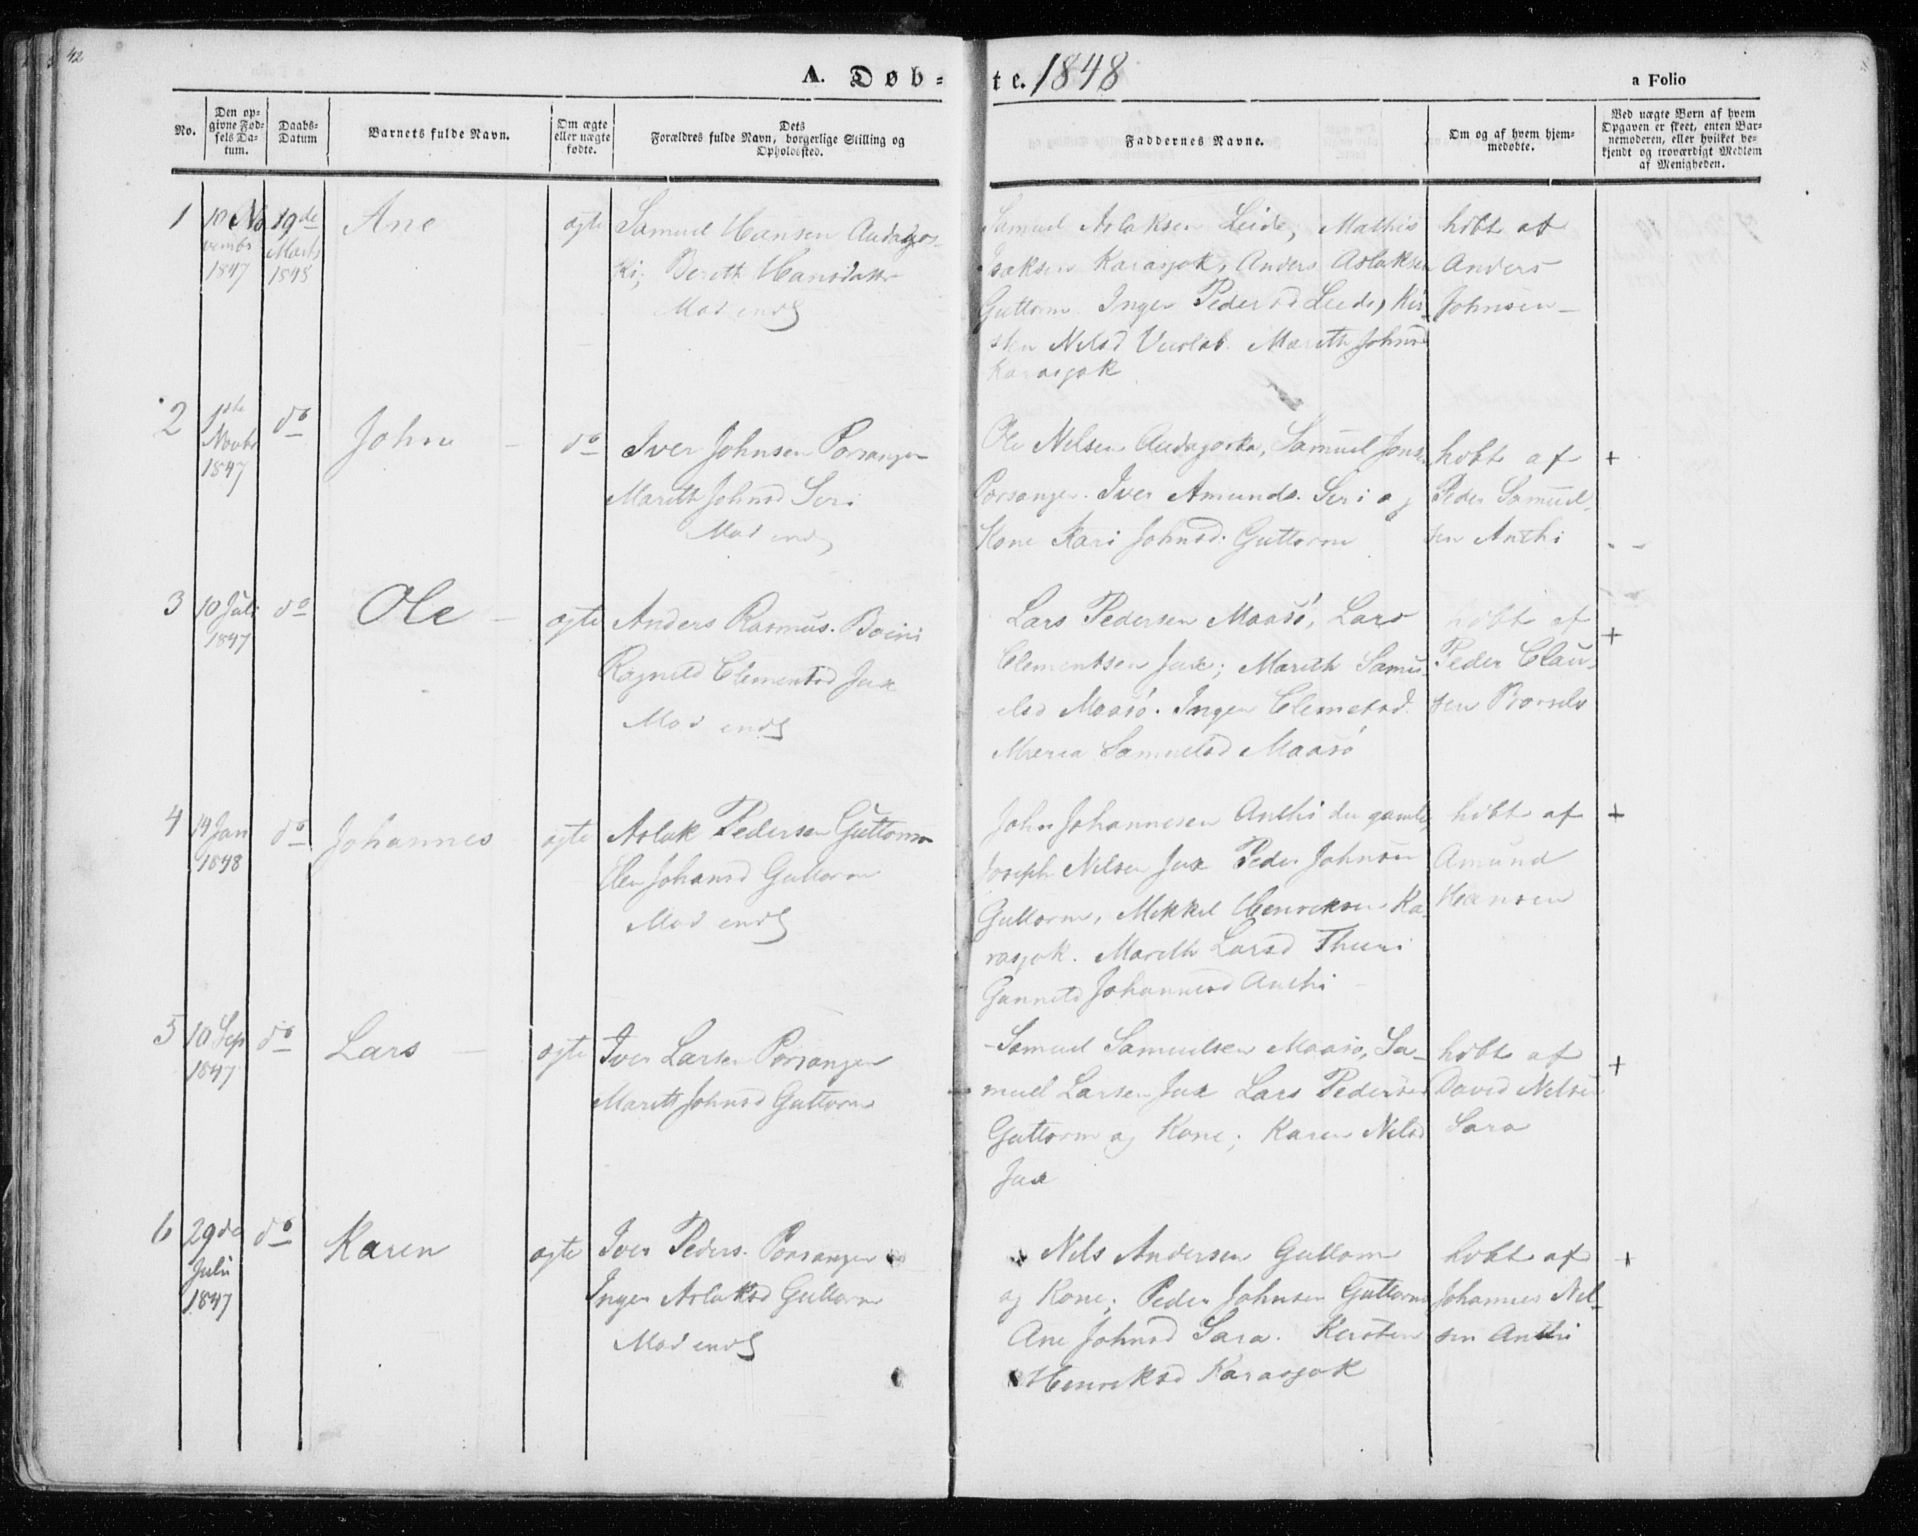 42
A. Døbte. 1848
a Folio
No.
Den opgivne Fødfels Datum.
Daabs-Datum
Barnets fulde Navn.
Om ægte eller uægte fødte.
Dets Forældres fulde Navn, borgerlige Stilling og Opholdsted.
Faddernes Navne.
Om og af hvem hjemmedøbte.
Ved uægte Børn af hvem Opgaven er skeet, enten Barnemoderen, eller hvilket bekjendt og troværdigt Medlem af Menigheden.
1
10 No
vembr
1847
19de
Marts
1848
Ane
ægte
Samuel Hansen Audagos-
ki, Berith Hansdatter
Mod endf
Samuel Aslaksen Leide, Mathis
Isaksen Karasjok, Anders Aslaksen
Guttorm. Inger Pedersd Leede, Kir-
sten Nilsd Vuolab. Marith Johnsd
Karasjok
hdbt af
Anders
Johnsen
2
1ste
Novbr
1847
do
John
do
Iver Johnsen Porsanger
Marith Johnsd Seri
Mod endf
Ole Nilsen Audagoska, Samuel Jons.
Porsanger. Iver Amunds. Seri og
Kone Kari Johnsd. Guttorm
hdbt af
Peder Samuel-
sen Anthi
+
3
10 Juli
1847
do
Ole
ægte
Anders Rasmus. Boini
Ragnild Clementsd Jax
Mod endf
Lars Pedersen Maasø, Lars
Clementsen Jax; Marith Samu-
elsd Maasø. Inger Clemetsd.
Maria Samuelsd Maasø
hdbt af
Peder Clau-
sen Borsels
+
4
14 Jan
1848
do
Johannes
ægte
Aslak Pedersen Guttorm
Elen Johansd Guttorm
Mod endf
John Johannesen Anthi den gamle,
Joseph Nilsen Jax Peder Johnsen
Guttorm, Mikkel Henriksen Ka-
rasjok. Marith Larsd Thuri
Gunnild Johannesd Anthi
hdbt af
Amund
Hansen
+
5
10 Sep
1847
do
Lars
ægte
Iver Larsen Porsanger
Marith Johnsd Guttorm
Samuel Samuelsen Maasø, Sa-
muel Larsen Jax Lars Pedersen
Guttorm og Kone; Karen Nilsd
Jax
hdbt af
David Nilsen
Sara
+
6
29de
Juli
1847
do
Karen
ægte
Iver Peders. Porsanger
Inger Aslaksd Guttorm
Mod endf
Nils Andersen Guttorm
og Kone; Peder Johnsen Guttorm
Ane Johnsd Sara. Kersten
Henriksd Karasjok
hdbt af
Johannes Nil-
sen Anthi
+